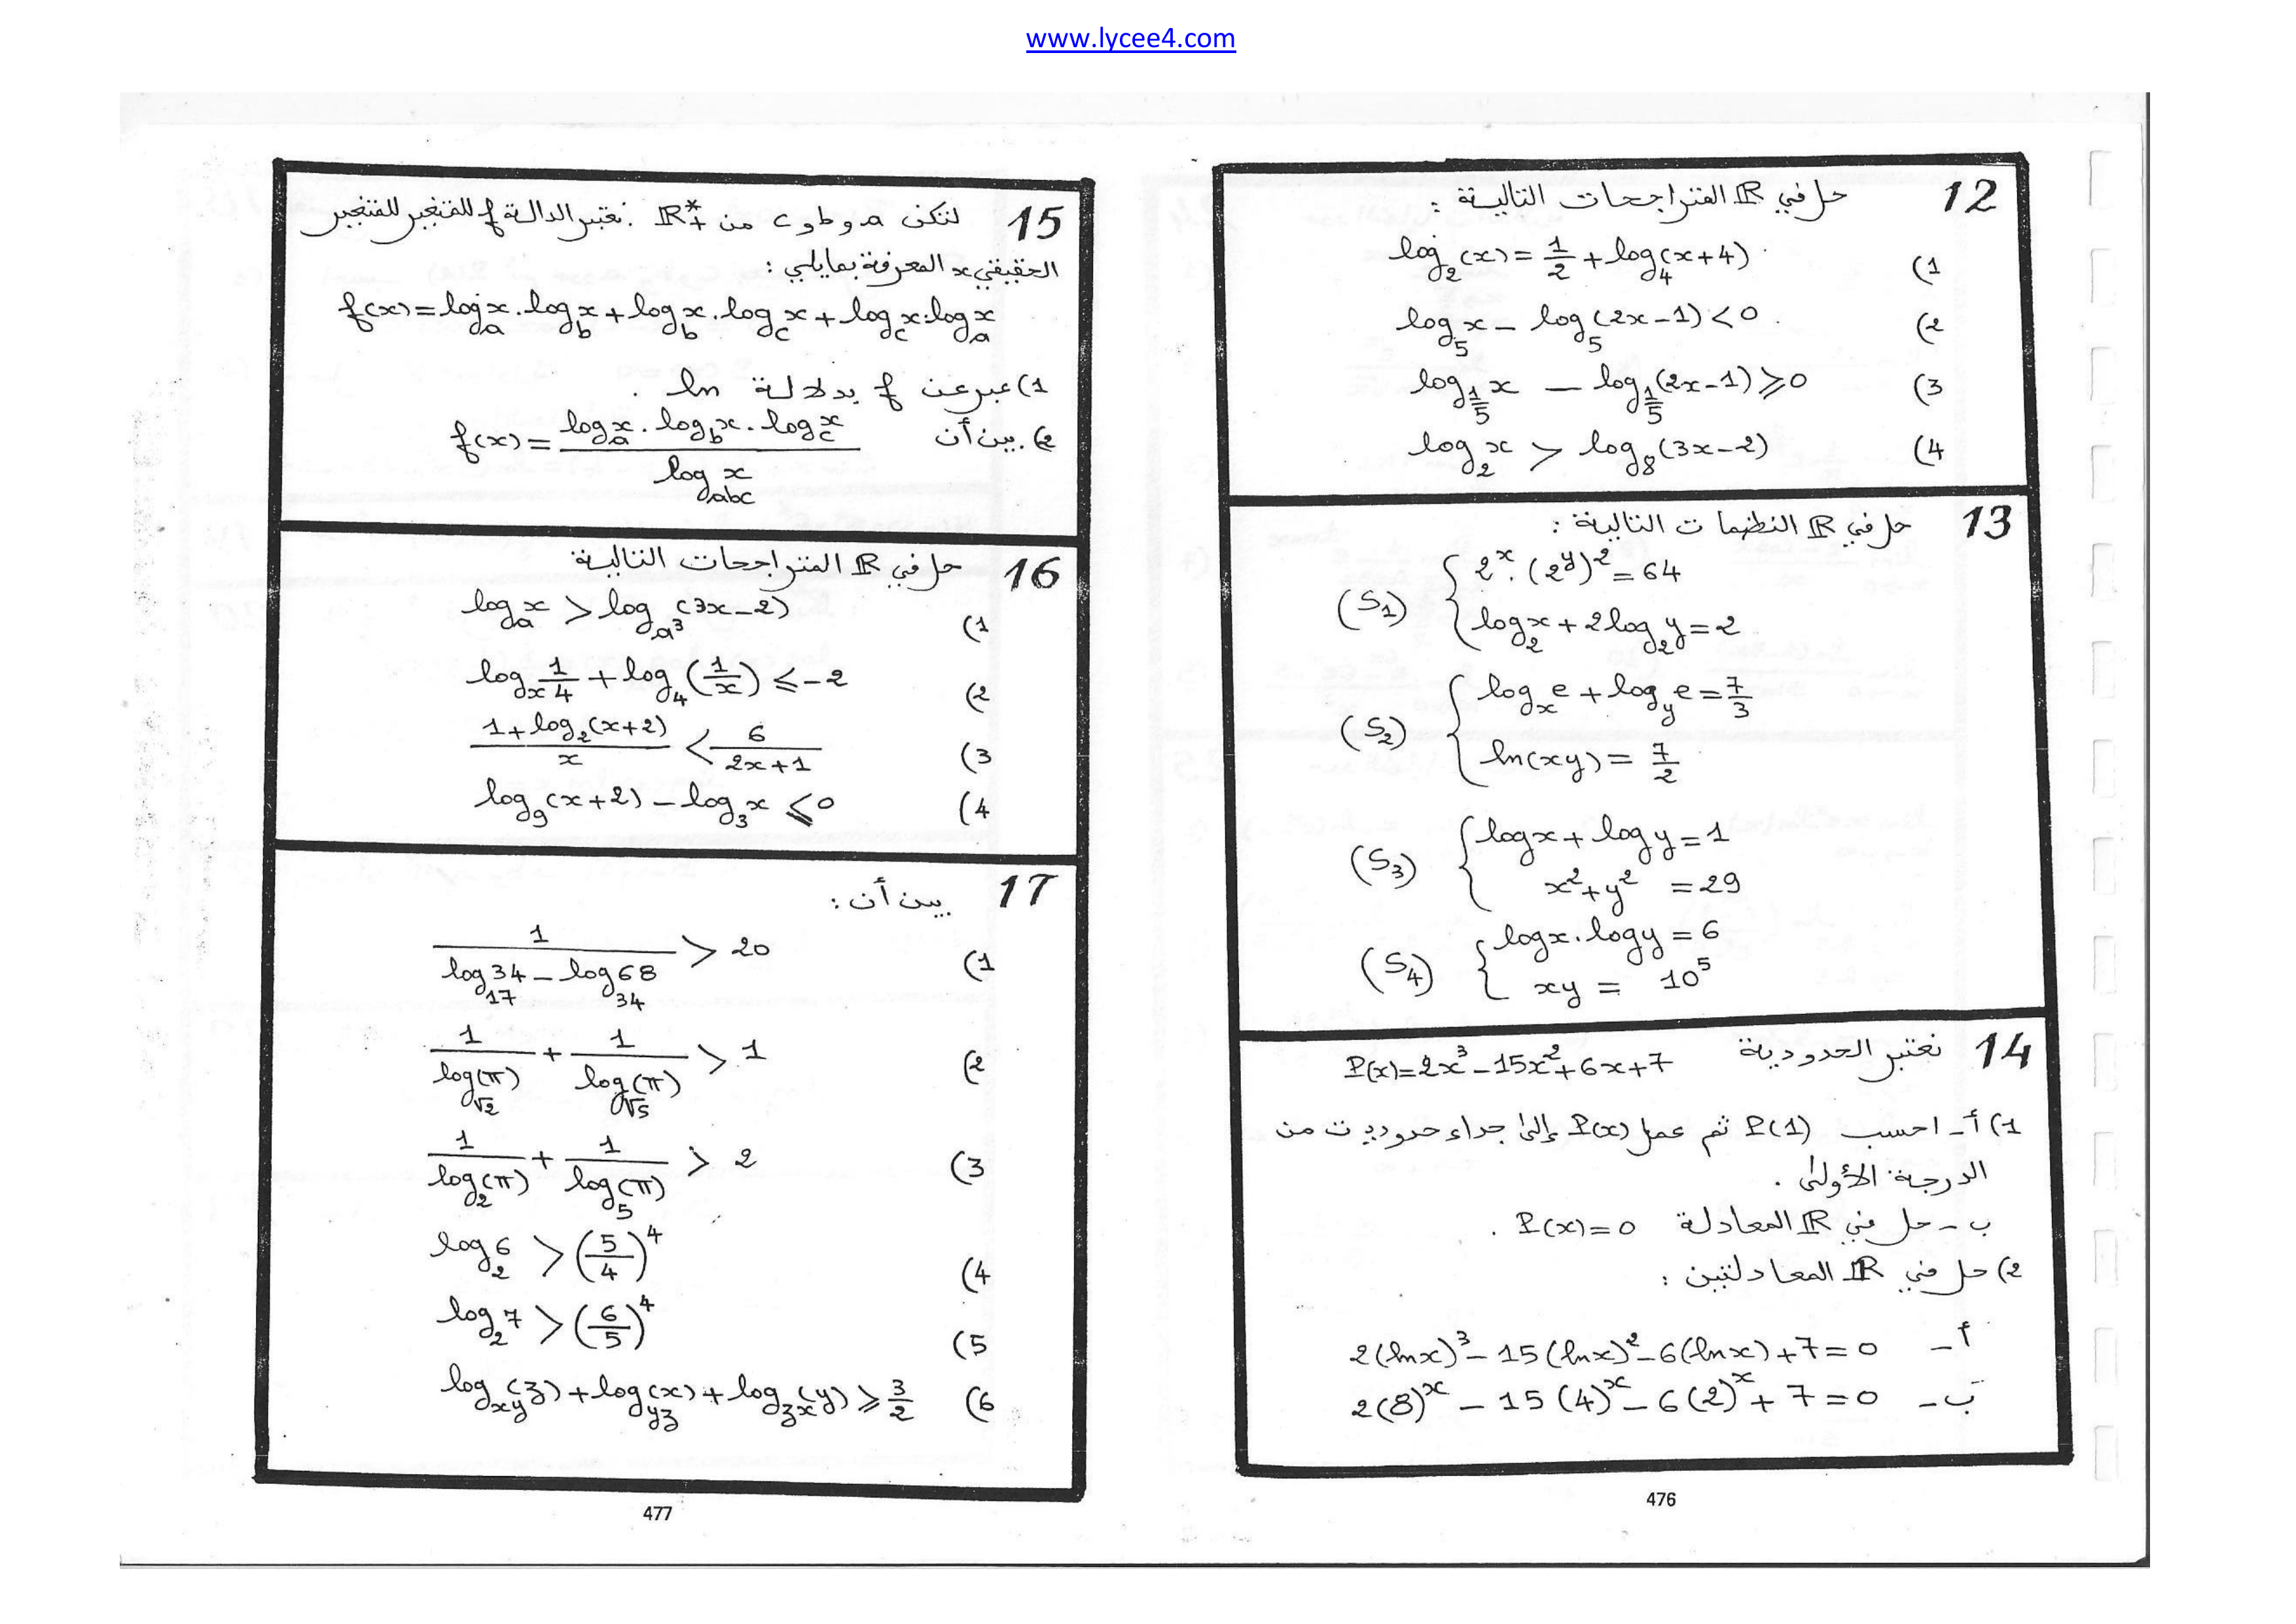 www.lycee4.com
12 حل في ℝ المتراجحات التالية :
1) log₂(x) = 1/2 + log₄(x+4)
2) log₅x − log₅(2x−1) < 0
3) log_{1/5}x − log_{1/5}(2x−1) ⩾ 0
4) log₂x > log₈(3x−2)
13 حل في ℝ النظمات التالية :
(S₁) { 2ˣ.(2ʸ)² = 64
log₂x + 2log₂y = 2
(S₂) { logₓe + log_y e = 7/3
ln(xy) = 7/2
(S₃) { logx + logy = 1
x² + y² = 29
(S₄) { logx.logy = 6
xy = 10⁵
14 نعتبر الحدودية P(x)=2x³−15x²+6x+7
1) أ- احسب P(1) ثم عمل P(x) إلى جداء حدوديت من
الدرجة الأولى .
ب- حل في ℝ المعادلة P(x)=0 .
2) حل في ℝ المعادلتين :
أ- 2(lnx)³−15(lnx)²−6(lnx)+7=0
ب- 2(8)ˣ−15(4)ˣ−6(2)ˣ+7=0
476
15 لتكن a و b و c من ℝ₊* . نعتبر الدالة f للمتغير للمتغير
الحقيقي x المعرفة بمايلي :
f(x)=logₐx.log_b x+log_b x.log_c x+log_c x.logₐx
1) عبر عن f بدلالة ln .
2). بين أن f(x) = (logₐx.log_b x.log_c x)/(log_{abc} x)
16 حل في ℝ المتراجحات التالية
1) logₐx > log_{a³}(3x−2)
2) logₓ 1/4 + log₄(1/x) ⩽ −2
3) (1+log₂(x+2))/x < 6/(2x+1)
4) log₉(x+2) − log₃x ⩽ 0
17 بين أن :
1) 1/(log₁₇34 − log₃₄68) > 20
2) 1/(log_{√2}(π)) + 1/(log_{√5}(π)) > 1
3) 1/(log₂(π)) + 1/(log₅(π)) > 2
4) log₂6 > (5/4)⁴
5) log₂7 > (6/5)⁴
6) log_{xy}(z) + log_{yz}(x) + log_{zx}(y) ⩾ 3/2
477